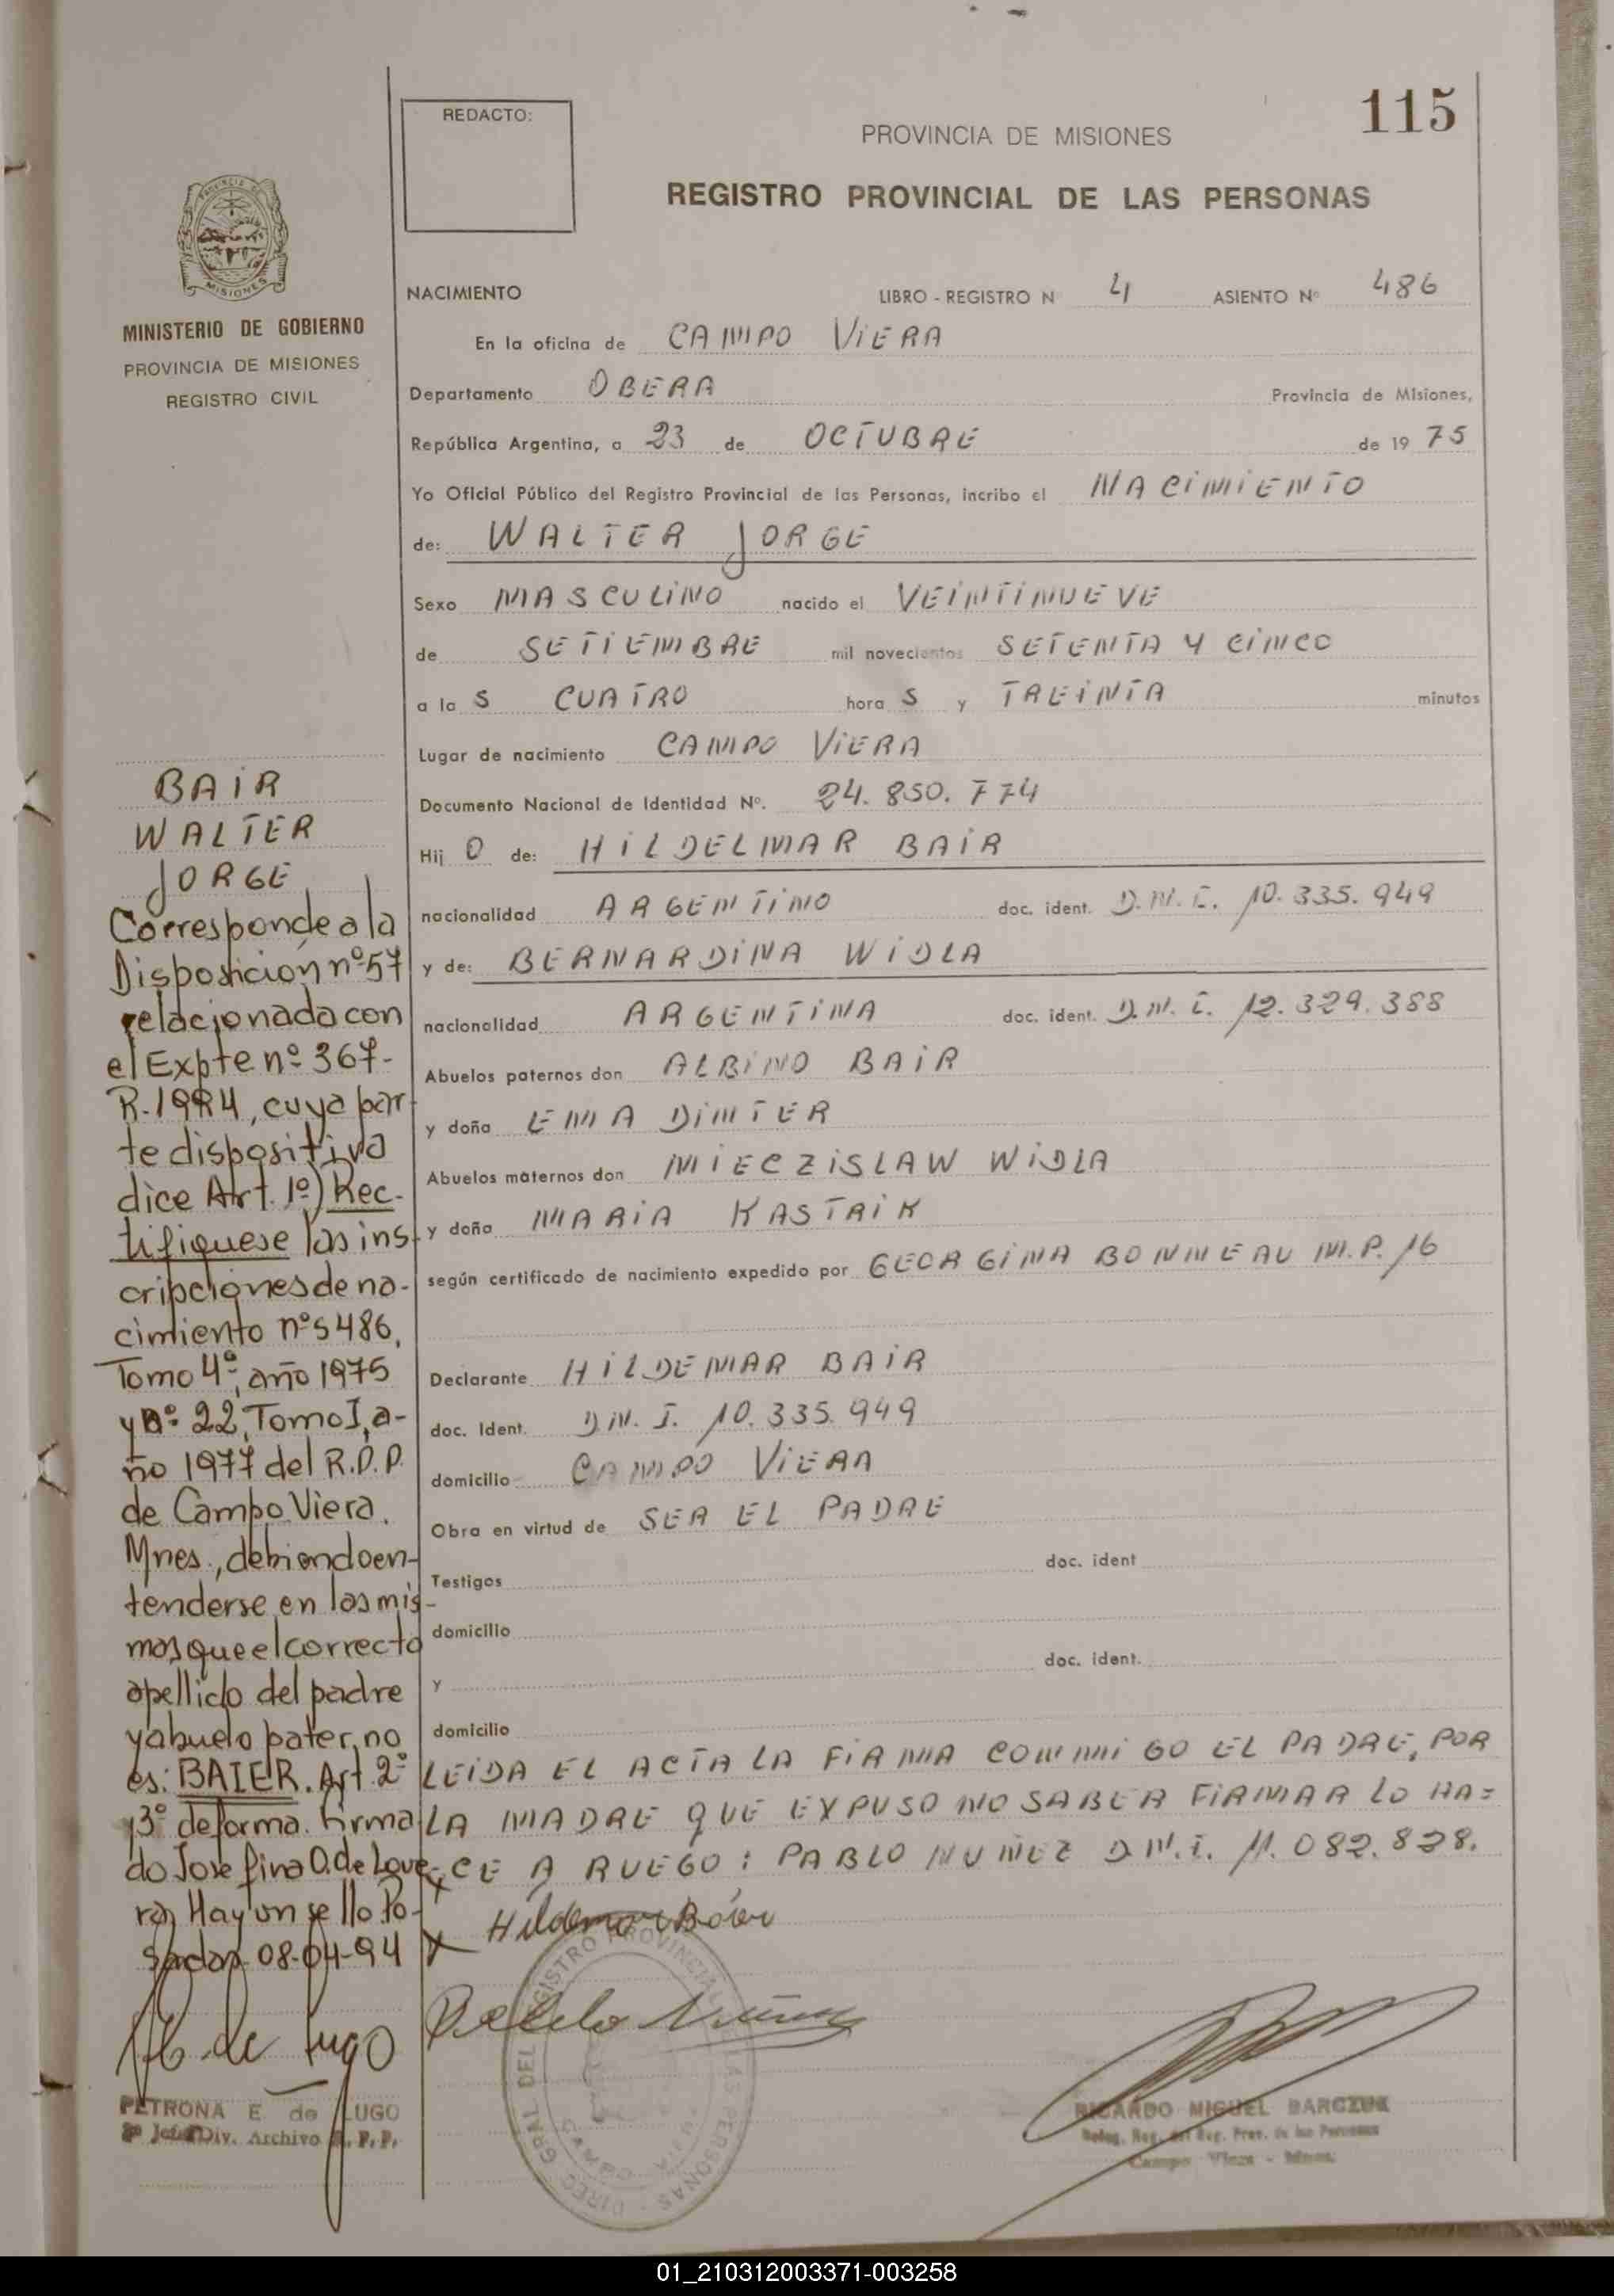 115
REDACTO:
PROVINCIA DE MISIONES
REGISTRO PROVINCIAL DE LAS PERSONAS
PROVINCIA DE MISIONES
MINISTERIO DE GOBIERNO
PROVINCIA DE MISIONES
REGISTRO CIVIL
NACIMIENTO LIBRO - REGISTRO N 4 ASIENTO Nº 486
En la oficina de CAMPO VIERA
Departamento OBERA Provincia de Misiones,
República Argentina, a 23 de OCTUBRE de 19 75
Yo Oficial Público del Registro Provincial de las Personas, incribo el NACIMIENTO
de: WALTER JORGE
Sexo MASCULINO nacido el VEINTINUEVE
de SETIEMBRE mil novecientos SETENTA Y CINCO
a la S CUATRO hora S y TREINTA minutos
Lugar de nacimiento CAMPO VIERA
Documento Nacional de Identidad Nº. 24.850.774
Hij O de: HILDELMAR BAIR
nacionalidad ARGENTINO doc. ident. D.N.I. 10.335.949
y de: BERNARDINA WIDLA
nacionalidad ARGENTINA doc. ident. D.N.I. 12.329.388
Abuelos paternos don ALBINO BAIR
y doña EMA DINTER
Abuelos maternos don MIECZISLAW WIDLA
y doña MARIA KASTRIK
según certificado de nacimiento expedido por GEORGINA BONNEAU M.P. 16
Declarante HILDEMAR BAIR
doc. Ident. D.N.I. 10.335.949
domicilio CAMPO VIERA
Obra en virtud de SER EL PADRE
Testigos doc. ident
domicilio
y doc. ident.
domicilio
LEIDA EL ACTA LA FIRMA CONMIGO EL PADRE, POR
LA MADRE QUE EXPUSO NO SABER FIRMAR LO HA=
CE A RUEGO: PABLO NUÑEZ D.N.I. 11.082.828.
BAIR
WALTER
JORGE
Corresponde a la
Disposición nº 57
relacionada con
el Expte nº 367-
R-1994, cuya par
te dispositiva
dice Art. 1º) Rec-
tifiquese las ins-
cripciones de na-
cimiento nºs 486,
Tomo 4º, año 1975
y nº 22, Tomo I, a-
ño 1977 del R.P.P.
de Campo Viera.
Mnes., debiendo en-
tenderse en las mis-
mas que el correcto
apellido del padre
y abuelo paterno
es: BAIER. Art. 2º
y 3º de forma. Firma
do Josefina O. de Love-
ra, Hay un sello Po-
sadas 08-04-94
Hildemar Báier
Pablo Nuñez
de Lugo
PETRONA E. de LUGO
Jefe Div. Archivo R. P. P.
REGISTRO PROVINCIAL DE LAS PERSONAS - DIREC. GRAL DEL
RICARDO MIGUEL BARCZUK
Deleg. Reg. del Reg. Prov. de las Personas
Campo Viera - Mnes.
01_210312003371-003258